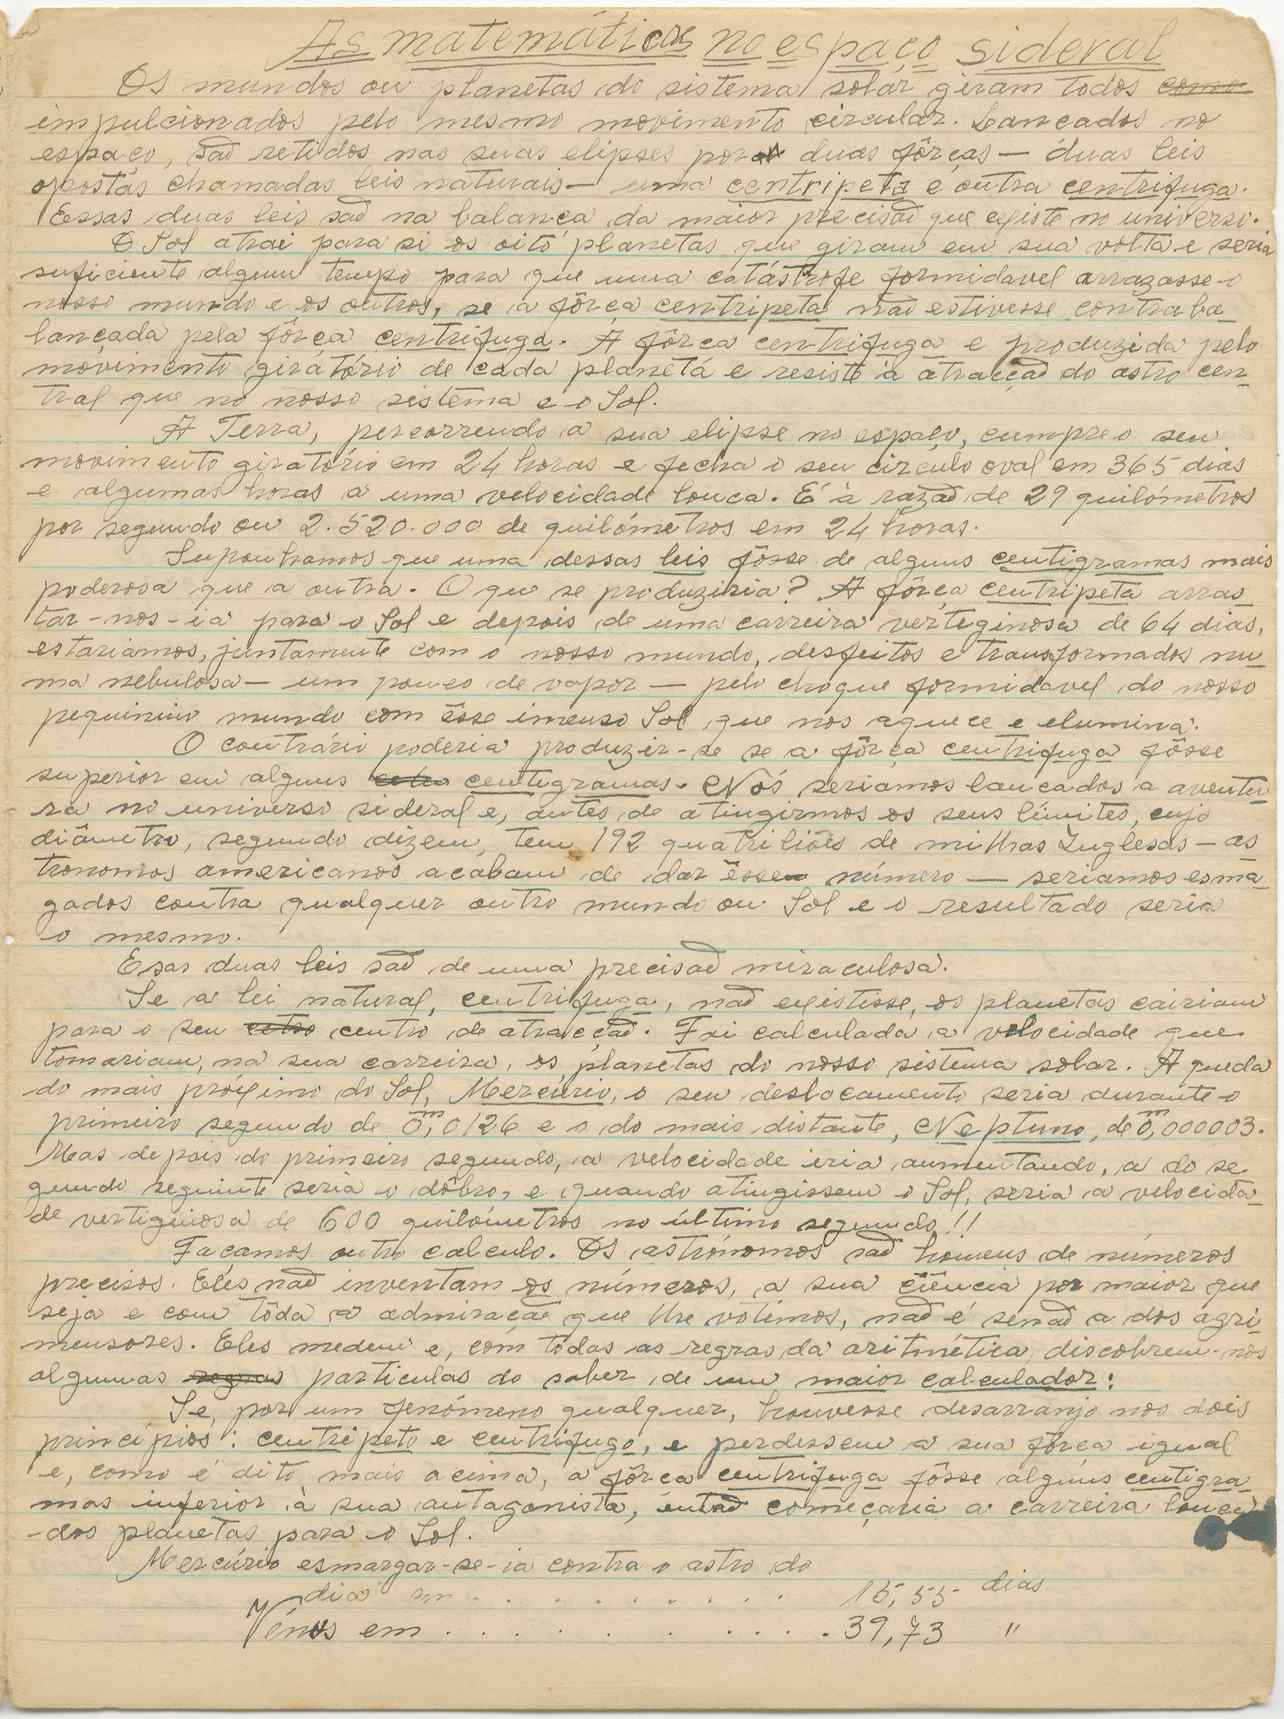 As matemáticas no espaço sideral
Os mundos ou planetas do sistema solar giram todos como
impulcionados pelo mesmo movimento circular. Lançados no
espaço, são retidos nas suas elipses por duas fôrças — duas leis
opostas chamadas leis naturais — uma centripeta e outra centrifuga.
Essas duas leis são na balança da maior precisão que existe no universo.
O Sol atrai para si os oito planetas que giram em sua volta e seria
suficiente algum tempo para que uma catástrofe formidavel arrazasse o
nosso mundo e os outros, se a fôrça centripeta não estivesse contraba-
lançada pela fôrça centrifuga. A fôrça centrifuga e produzida pelo
movimento giratório de cada planeta e resiste à atracção do astro cen-
tral que no nosso sistema e o Sol.
A Terra, percorrendo a sua elipse no espaço, cumpre o seu
movimento giratório em 24 horas e fecha o seu circulo oval em 365 dias
e algumas horas a uma velocidade louca. É à razão de 29 quilómetros
por segundo ou 2.520.000 de quilómetros em 24 horas.
Suponhamos que uma dessas leis fôsse de alguns centigramas mais
poderosa que a outra. O que se produziria? A fôrça centripeta arras-
tar-nos-ia para o Sol e depois de uma carreira vertiginosa de 64 dias,
estariamos, juntamente com o nosso mundo, desfeitos e transformados nu-
ma nebulosa — um pouco de vapor — pelo choque formidavel do nosso
pequinino mundo com êsse imenso Sol que nos aquece e elumina.
O contrário poderia produzir-se se a fôrça centrifuga fôsse
superior em alguns centigramas. Nós seriamos lançados a aventu-
ra no universo sideral e, antes de atingirmos os seus limites, cujo
diâmetro, segundo dizem, tem 192 quatriliões de milhas Inglesas — as
tronomos americanos acabam de dar êsse número — seriamos esma-
gados contra qualquer outro mundo ou Sol e o resultado seria
o mesmo.
Esas duas leis são de uma precisão miraculosa.
Se a lei natural, centrifuga, não existisse, os planetas cairiam
para o seu cetro centro de atracção. Foi calculada a velocidade que
tomariam, na sua carreira, os planetas do nosso sistema solar. A queda
do mais próximo do Sol, Mercúrio, o seu deslocamento seria durante o
primeiro segundo de 0,m0126 e o do mais distante, Neptuno, de 0,m000003.
Mas depois do primeiro segundo, a velocidade iria aumentando, a do se-
gundo seguinte seria o dôbro, e quando atingissem o Sol, seria a velocida-
de vertiginosa de 600 quilómetros no último segundo!!
Façamos outro calculo. Os astrónomos são homens de números
precisos. Eles não inventam os números, a sua ciência por maior que
seja e com tôda a admiração que lhe votimos, não é senão a dos agri-
mensores. Eles medem e, com todas as regras da aritmética, discobrem-nos
algumas regras particulas do saber de um maior calculador:
Se, por um fenómeno qualquer, houvesse desarranjo nos dóis
principios: centripeto e centrifugo, e perdessem a sua fôrça igual
e, como é dito mais acima, a fôrça centrifuga fôsse alguns centigra-
mas inferior à sua antagonista, então começaria a carreira louca
dos planetas para o Sol.
Mercúrio esmargar-se-ia contra o astro do
dia em . . . . . . . . . . 15,55 dias
Vénus em . . . . . . . . . . 39,73 "